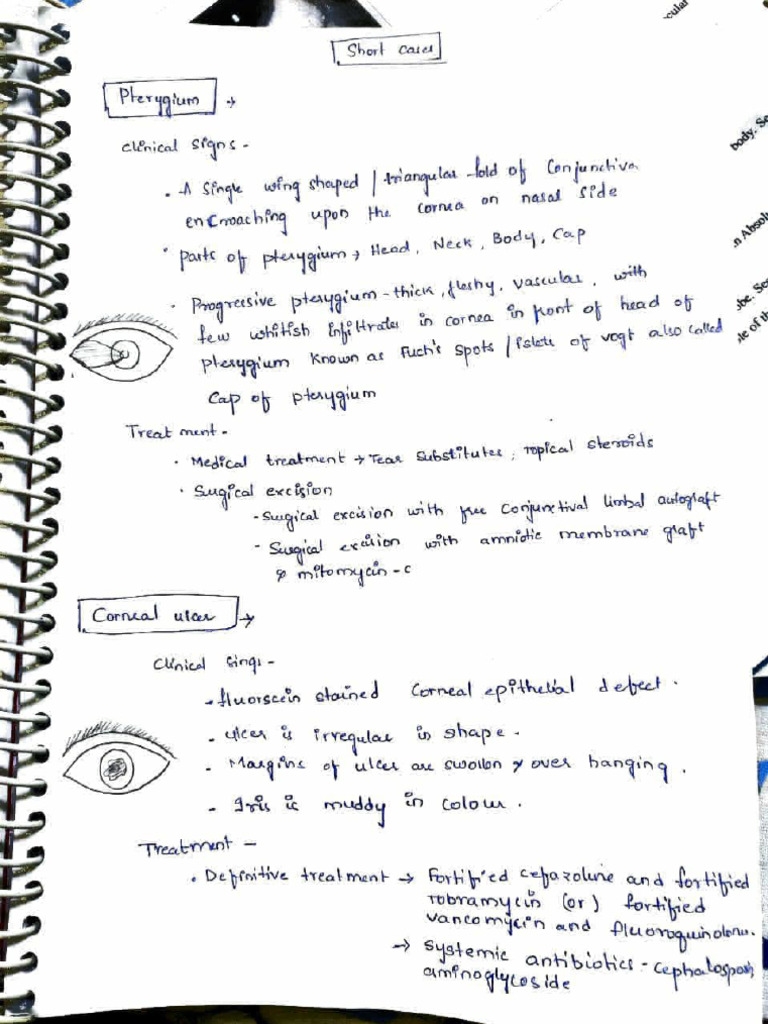 Short Cases
Pterygium →
Clinical Signs -
• A Single wing shaped / triangular fold of Conjunctiva
encroaching upon the cornea on nasal side
• parts of pterygium → Head, Neck, Body, Cap
• Progressive pterygium - thick, fleshy, vascular, with
few whitish infiltrates in cornea in front of head of
pterygium known as Fuch's spots / islets of vogt also called
Cap of pterygium
Treatment -
• Medical treatment → Tear Substitutes, Topical steroids
• Sugical excision
- Surgical excision with free Conjunctival limbal autograft
- Surgical excision with amniotic membrane graft
& mitomycin - c
Corneal ulcer →
Clinical Sings -
- fluorscein stained Corneal epithelial defect.
- ulcer is irregular in shape.
- Margins of ulcer are swollen & over hanging.
- Iris is muddy in colour.
Treatment -
• Definitive treatment → Fortified cefazoline and fortified
Tobramycin (or) fortified
vancomycin and fluoroquinolone.
→ Systemic antibiotics - cephalosporin
aminoglycoside
cular
body. Se
.n Absolu
.be. Sec
.le of th